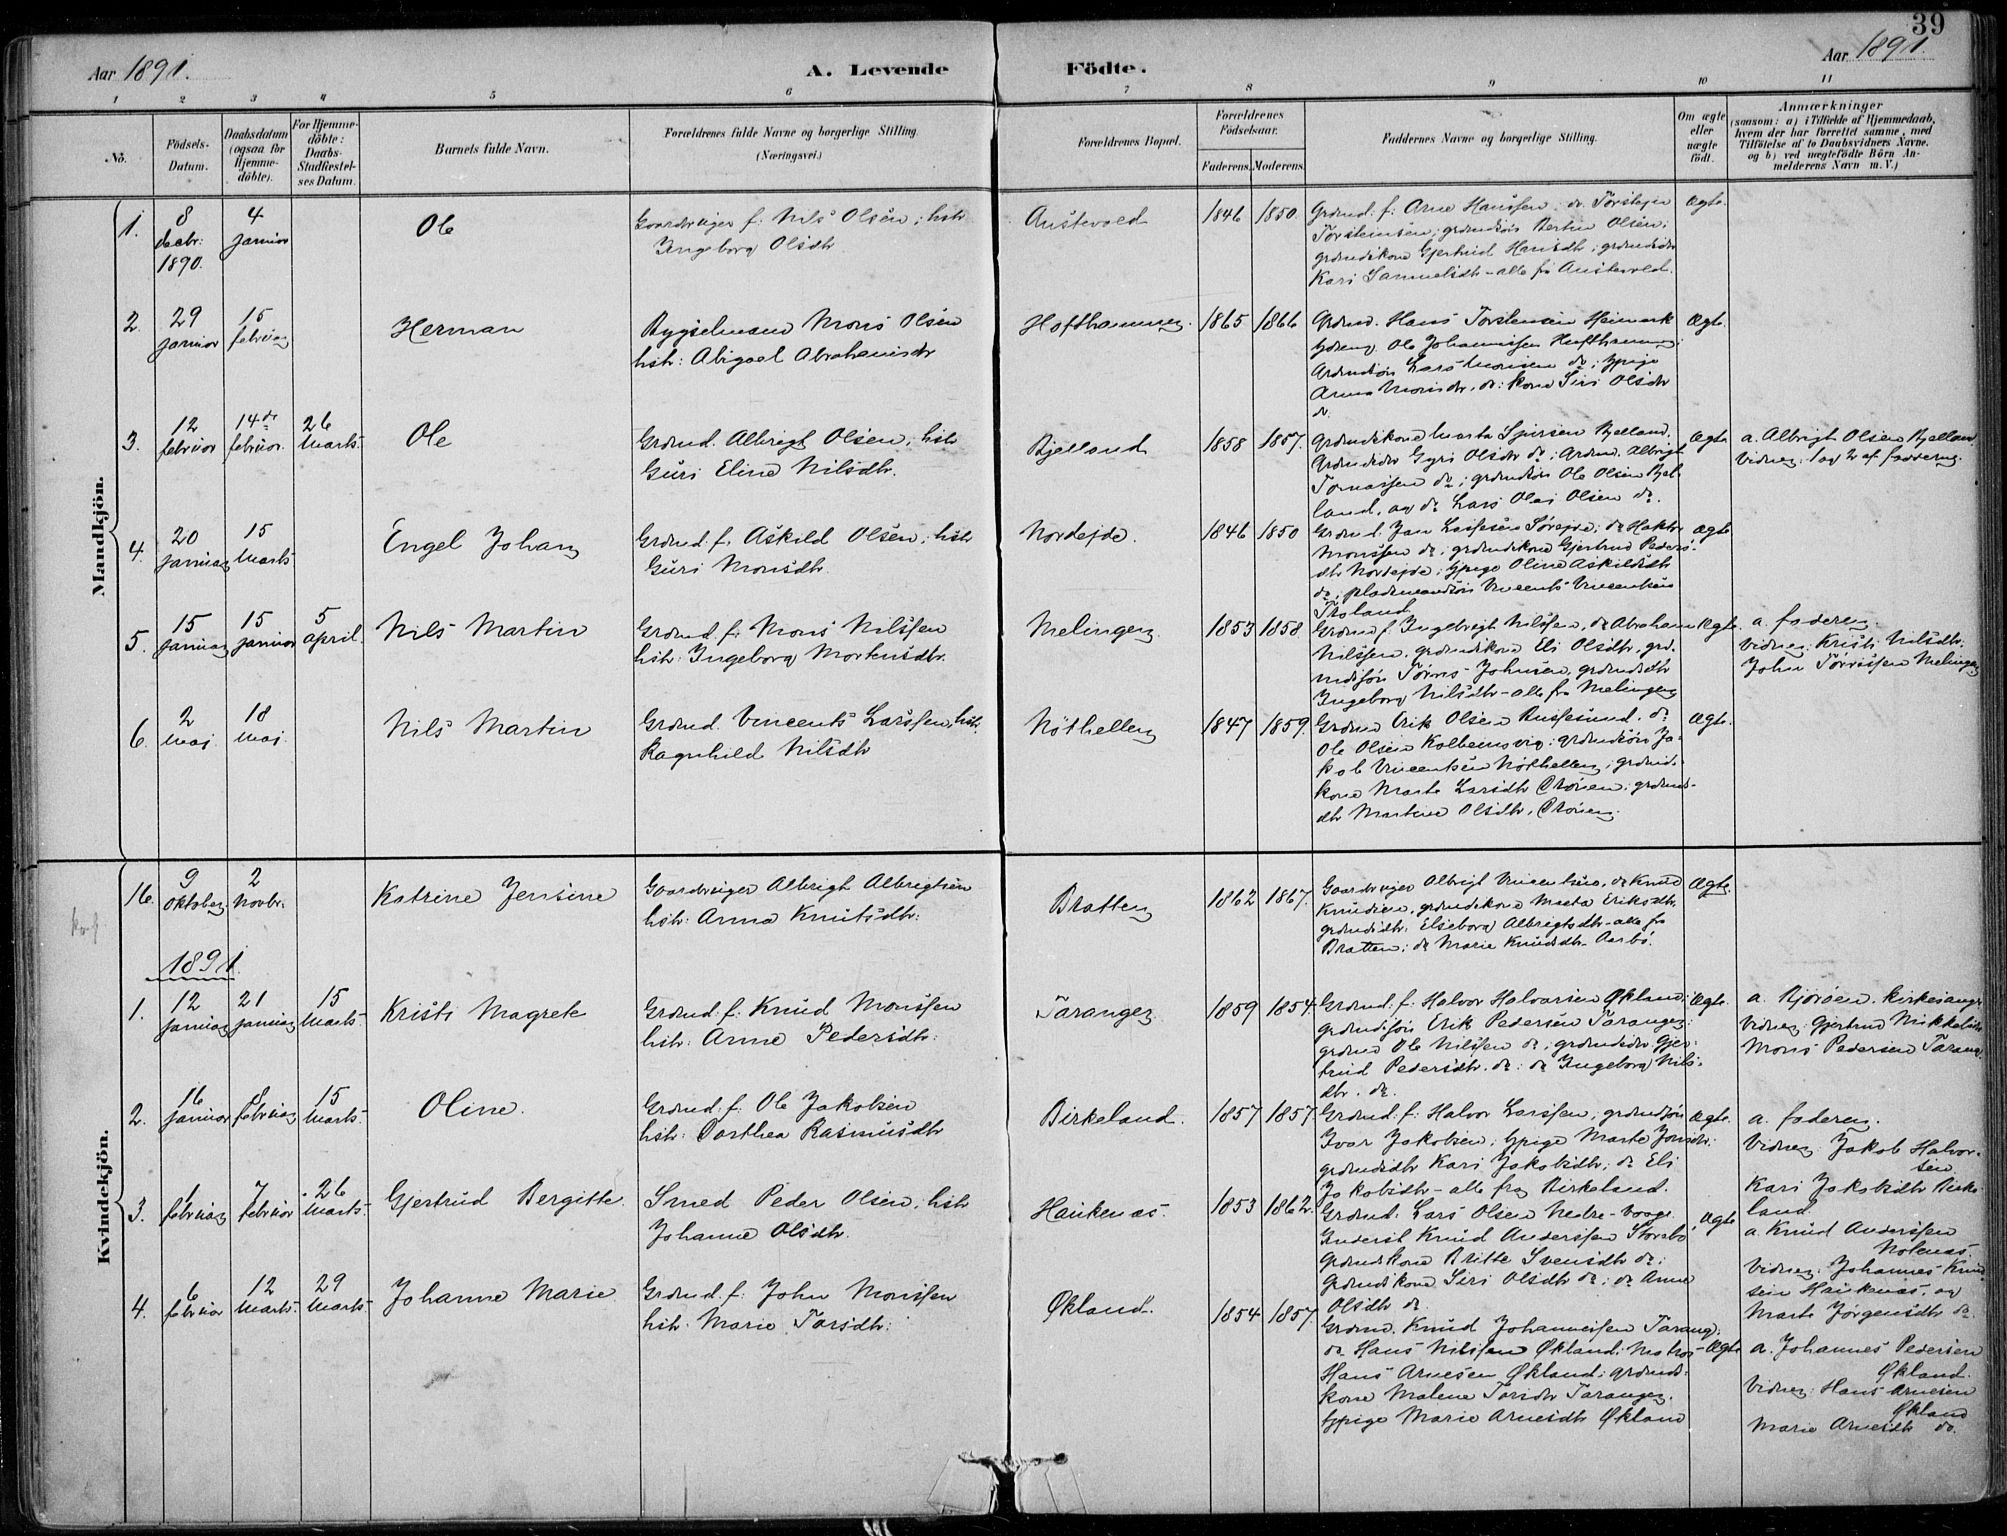 39
Aar 1891.
A. Levende Födte.
Aar 1891.
1 2 3 4 5 6 7 8 9 10 11
No.
Födsels-Datum.
Daabsdatum (ogsaa for Hjemme-döbte).
For Hjemme-döbte: Daabs-Stadfæstel-ses Datum.
Barnets fulde Navn.
Forældrenes fulde Navne og borgerlige Stilling.
(Næringsvei.)
Forældrenes Bopæl.
Forældrenes Födselsaar.
Faderens. Moderens.
Faddernes Navne og borgerlige Stilling.
Om ægte eller uægte födt.
Anmærkninger
(saasom: a) i Tilfælde af Hjemmedaab,
hvem der har forrettet samme, med
Tilföielse af to Daabsvidners Navne.
og b) ved uægtefödte Börn An-
melderens Navn m. V.)
Mandkjön.
1.
8 decbr: 1890.
4 januar
Ole
Gaardbruger f. Nils Olsen, hstr
Ingeborg Olsdtr
Austevold
1846 1850.
Grdmd. f. Arne Hanssen, do Torstein
Torsteinsen; grdmdsøn Bertin Olsen;
grdmdskone Gjertrud Hansdtr; grdmdsdtr
Kari Samuelsdtr - alle fra Austevold.
Ægte.
2.
29 januar
15 februar
Herman
Bygselmand Mons Olsen
hstr: Abigael Abrahamsdr
Hofthammer.
1865 1866
Grdmd. Hans Torstensen Heimark
Ole Johannessen Hufthammer;
Grdmdsøn Lars Monsen do; tjpige
Anna Monsdtr. do: kone Siri Olsdtr
do.
Ægte.
3.
12 februar
14de februar.
26 Marts.
Ole
Grdmd. Albrigt Olsen, hstr
Guri Eline Nilsdtr.
Bjelland
1858 1857.
Grdmdskone Marta Bjelland.
Grdmdsdtr Gyri Olsdtr do; Grdmd. Albrigt
Tomassen do; grdmdsøn Ole Olsen Bjel-
land, og do Lars Olai Olsen do.
Ægte
a. Albrigt Olsen Bjelland
Vidner: 1 og 2 af fadderne.
4.
20 januar
15 Marts
Engel Johan
Grdmd. f. Askild Olsen, hstr
Guri Monsdtr.
Nordejde.
1846 1850
Grdmd. Jan Larsen do Hakon
Monssen do; grdmdskone Gjertrud Peders-
dtr Nordejde; tjpige Oline Askildsdtr
do; pladsmandsøn Vincents Vincentsen
Ægte
5.
15 januar
15 januar
5 april.
Nils Martin
Grdmd. f. Mons Nilssen
hstr: Ingeborg Mortensdtr.
Melingen
1853 1858.
Grdmd f. Ingebrigt Nilssen, do Abraham
Nilssen, grdmdskone Eli Olsdtr, grd-
mdsøn Johnsen, grdmdsdtr
Ingeborg Nilsdtr - alle fra Melingen
Ægte.
a. faderen.
Vidner: Kristi Nilsdtr.
John Melingen
6.
2 Maj
18 Maj.
Nils Martin
Grdmd. Vincents Larssen, hstr.
Ragnhild Nilsdtr
Nøthellen
1847 1859.
Grdmd Erik Olsen, do
Ole Olsen Kolbeinsvig; grdmdsøn Ja-
kob Vincentsen Nøthellen; grdmds-
kone Marta Larsdtr; grdmds-
dtr Martine Olsdtr,
Ægte.
Kvindekjön.
16.
9 oktober
2 Novbr.
Katrine Jensine
Gaardbruger Albrigt Albrigtsen
hstr: Anna Knutsdtr:
Bratten
1862 1867.
Gaardbruger Albrigt Vincentsen, do Knud
Knudsen, grdmdskone Marta Eriksdtr,
grdmdsdtr: Elseborg Albrigtsdtr - alle fra
Bratten; do Marie Knudsdtr Aarbø.
Ægte.
1891.
1.
12 januar
21 januar
15 Marts.
Kristi Magrete
Grdmd. f. Knud Monssen
hstr: Anne Pedersdtr:
Tarangen
1859 1854
Grdmd: f: Halvor Halvarsen Økland;
grdmdsøn Erik Pedersen Tarangen;
grdmd Ole Nilssen do; grdmdsdtr Gjer-
trud Pedersdtr. do: do Ingeborg Nils-
dtr. do.
Ægte.
a. Bjøröen, kirkesanger
Vidner: Gjertrud Mikkelsdtr
Mons Pedersen Tarang.
2.
16 januar
8 februar
15 Marts.
Oline.
Grdmd: f: Ole Jakobsen
hstr: Dorthea Rasmusdtr
Birkeland.
1857 1857
Grdmd: f: Halvor Larssen, grdmdsøn
Ivar Jakobsen; tjpige Marte Jonsdtr;
grdmdsdtr Kari Jakobsdtr; do Eli
Jakobsdtr - alle fra Birkeland.
Ægte.
a. faderen.
Vidner: Jakob Halvor-
sen
Kari Jakobsdtr Birke-
land.
3.
1 februar
7 februar
26 Marts.
Gjertrud Bergitte.
Smed Peder Olsen, hstr
Johanne Olsdtr.
Haukenæs.
1853 1862.
Grdmd. Lars Olsen Nedre-Vaage
Knud Anderssen Storebø
Grdmdskone Britte Svensdtr do;
Grdmdskone Siri Olsdtr do; do Anne
Olsdtr do.
Ægte
a. Knud Anderssen
Vidner: Johannes Knud-
sen Haukenæs, og
Marte Jørgensdtr do.
4.
6 februar
12 Marts.
29 Marts.
Johanne Marie
Grdmd. f: John Monssen
hstr. Marie Larsdtr:
Økland.
1854 1857
Grdmd. Knud Johannessen Tarang;
do Hans Nilssen Økland;
Hans Arnesen Økland; grdmds-
kone Malene Tarangen.
tjpige Marie Arnesdtr Økland
Ægte
a. Johannes Pedersen
Økland.
Vidner: Hans Arnesen
Økland
Marie Arnesdtr do.